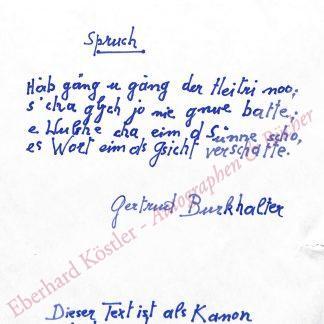 Spruch
Häb gäng u gäng der Heitri noo;
s'cha glych jo nie gnue batte;
e Wulche cha eim d Sunne scho,
es Wort eim ds Gsicht verschatte.
Gertrud Burkhalter
Eberhard Köstler - Autographen & Bücher
Dieser Text ist als Kanon